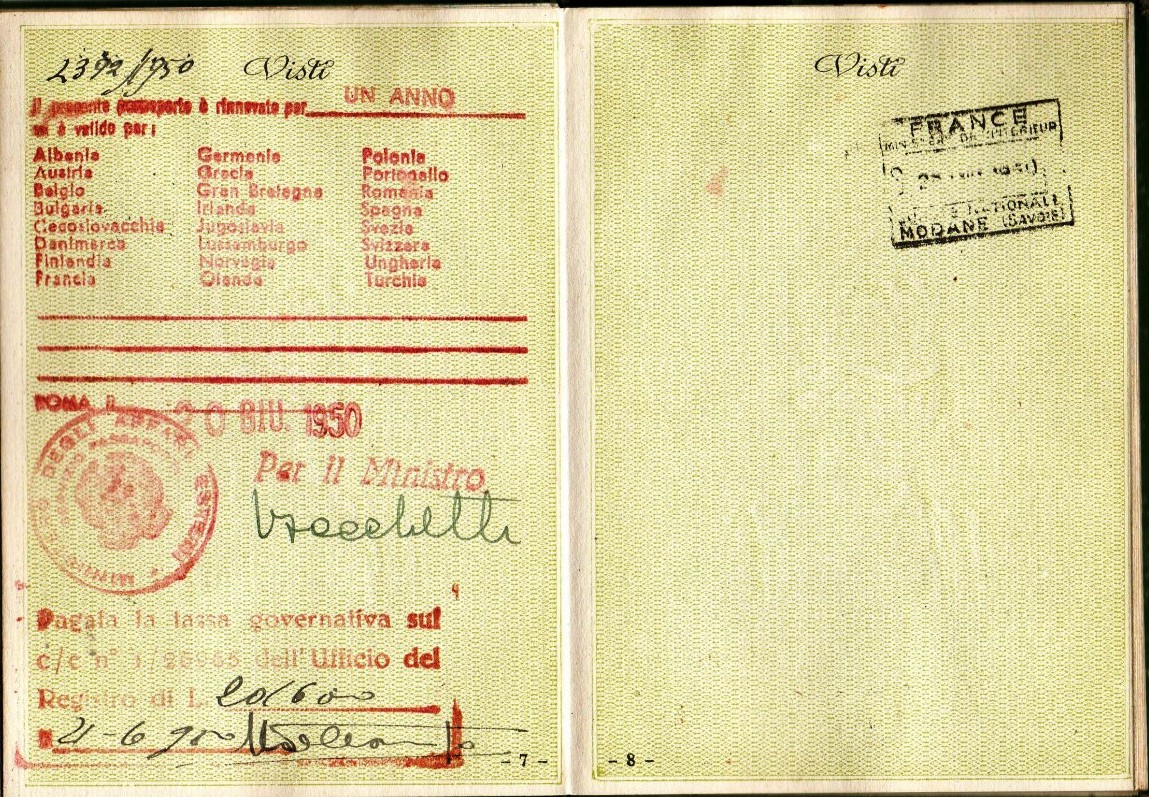 2392/950 Visti
Il presente passaporto è rinnovato per UN ANNO
ed è valido per:
Albania Germania Polonia
Austria Grecia Portogallo
Belgio Gran Bretagna Romania
Bulgaria Irlanda Spagna
Cecoslovacchia Jugoslavia Svezia
Danimarca Lussemburgo Svizzera
Finlandia Norvegia Ungheria
Francia Olanda Turchia
ROMA, li 20 GIU. 1950
DEGLI AFFARI ESTERI
Per il Ministro
Pagata la tassa governativa sul
c/c n° 1/ dell'Ufficio del
Registro di L.
21-6
- 7 -
Visti
FRANCE
MINISTERE DE L'INTERIEUR
NATIONALE
MODANE (SAVOIE)
- 8 -